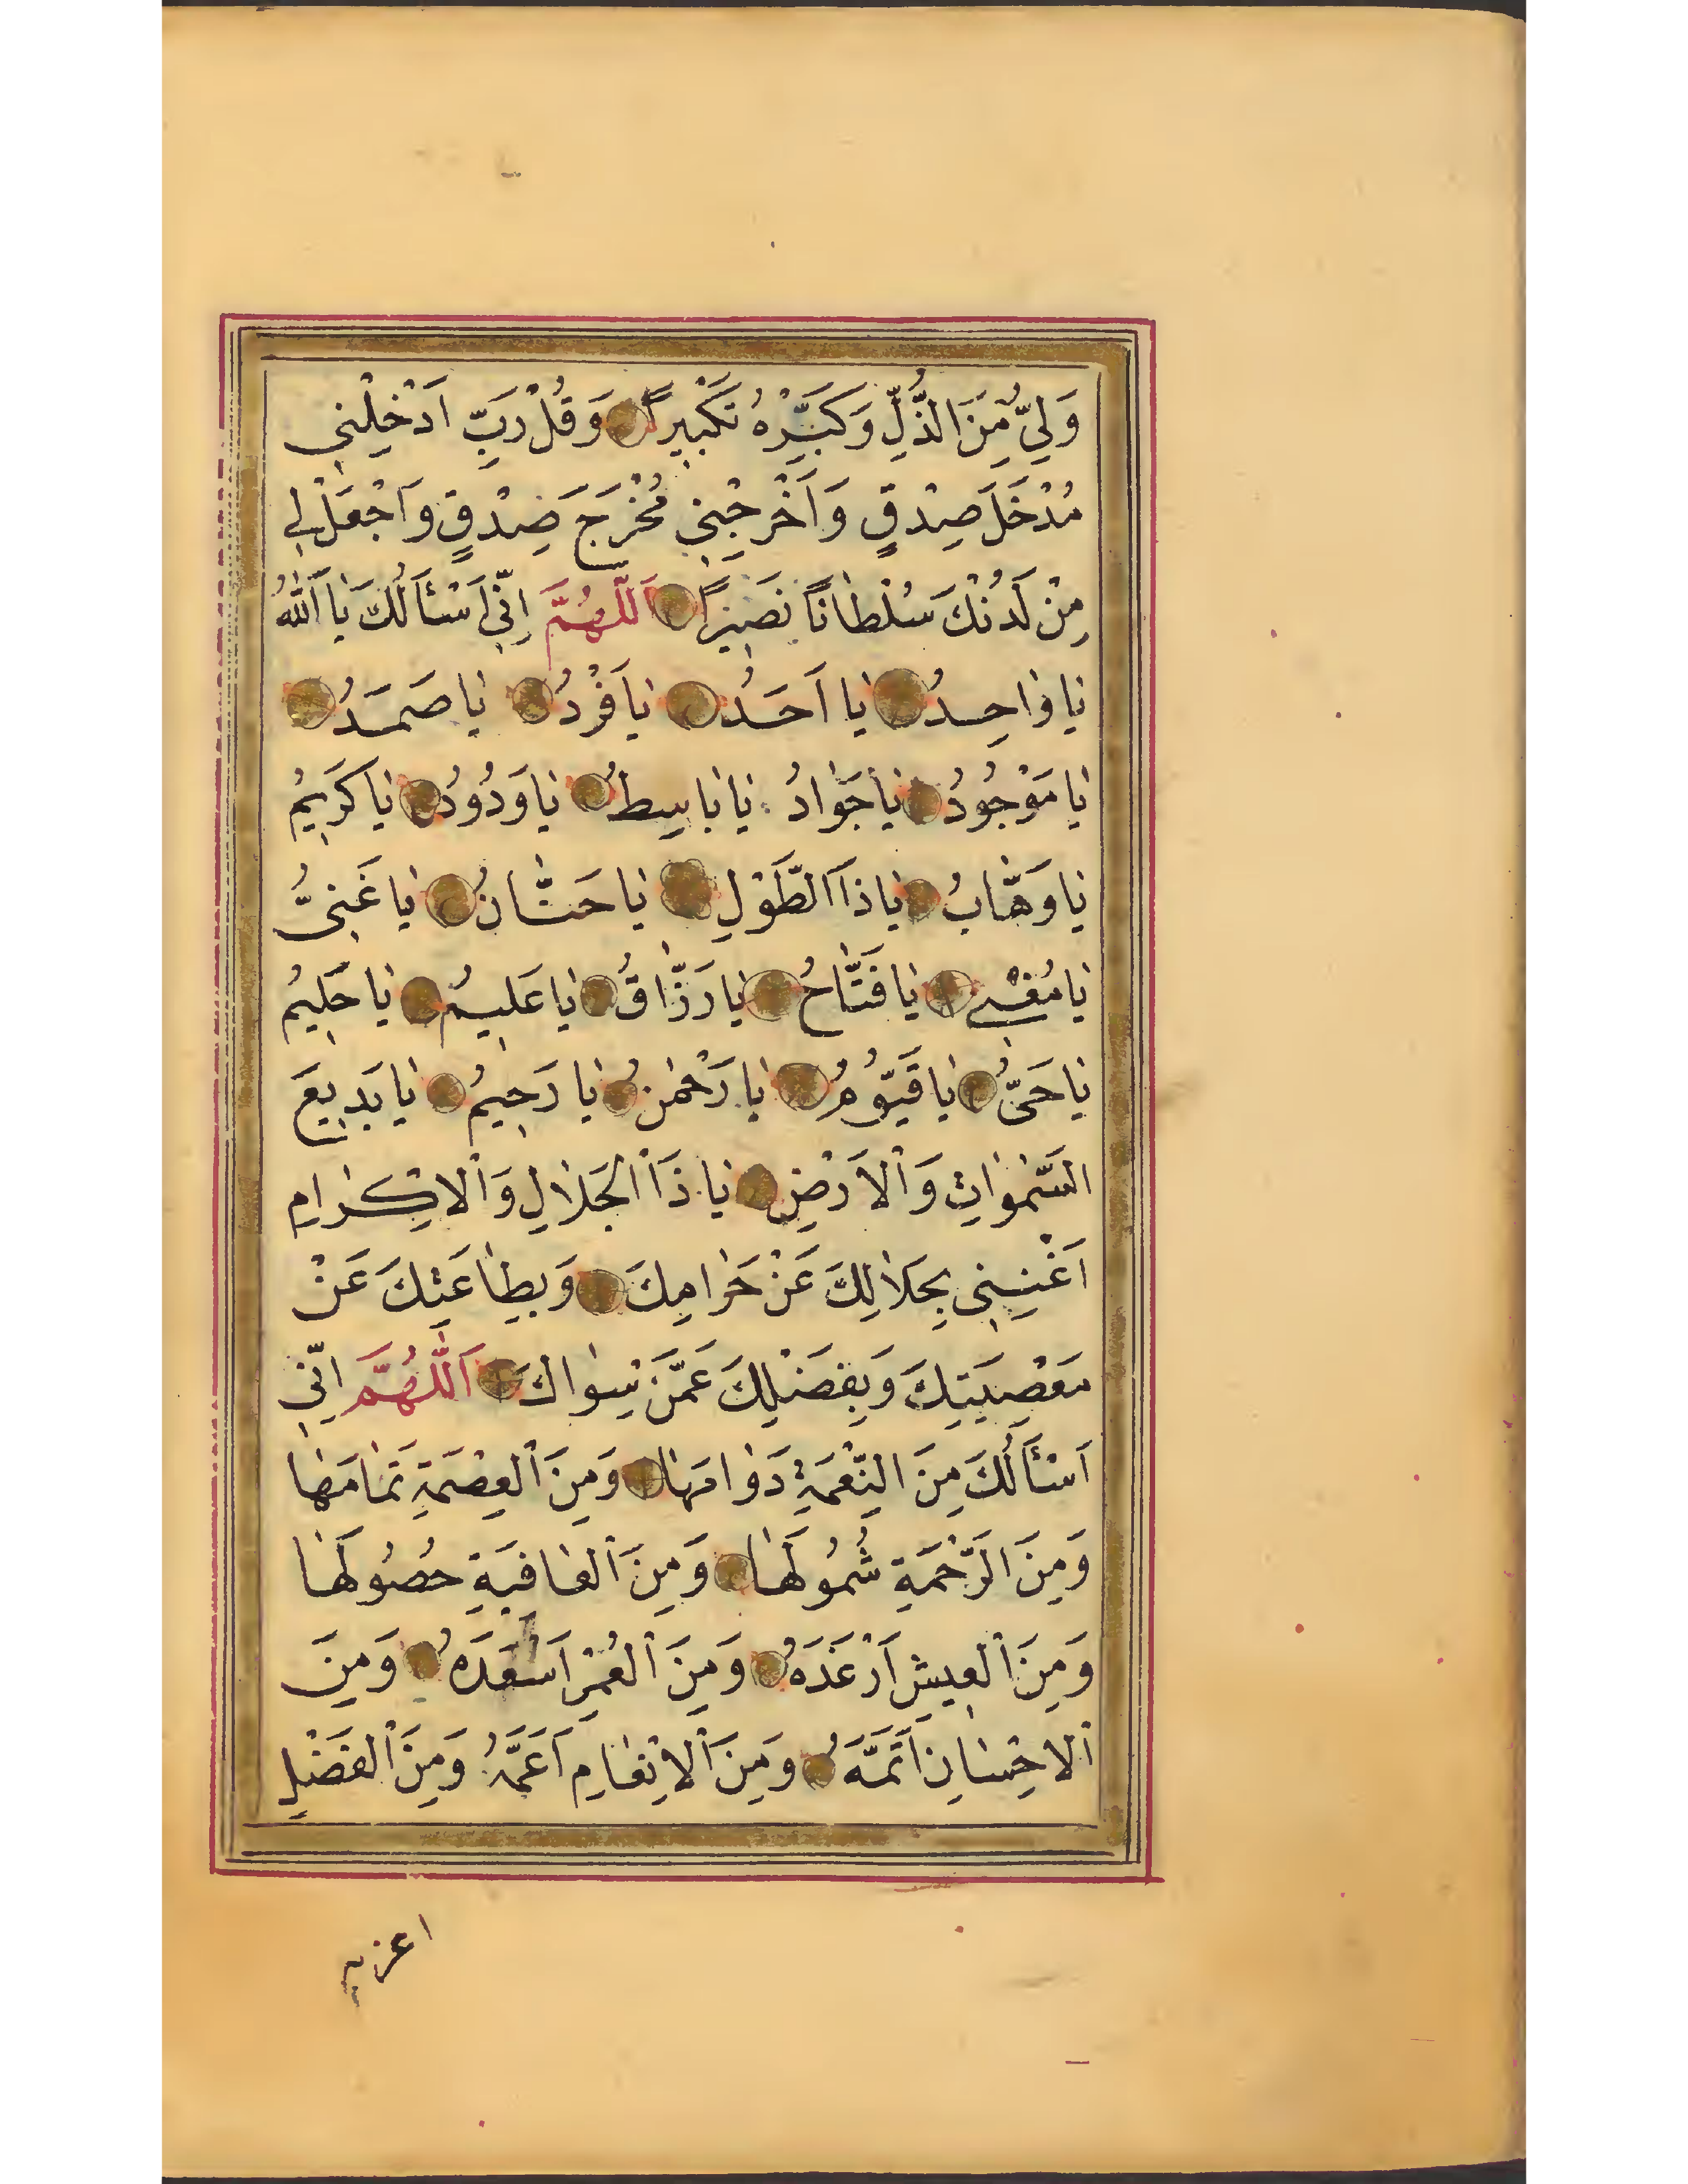 وَلِيٌّ مِنَ الذُّلِّ وَكَبِّرْهُ تَكْبِيرًا وَقُلْ رَبِّ اَدْخِلْنِي
مُدْخَلَ صِدْقٍ وَاَخْرِجْنِي مُخْرَجَ صِدْقٍ وَاجْعَلْ لِي
مِنْ لَدُنْكَ سُلْطَانًا نَصِيرًا اَللّٰهُمَّ اِنِّي اَسْئَالُكَ يَا اَللّٰهُ
يَا وَاحِدُ يَا اَحَدُ يَا فَرْدُ يَا صَمَدُ
يَا مَوْجُودُ يَا جَوَادُ يَا بَاسِطُ يَا وَدُودُ يَا كَرِيمُ
يَا وَهَّابُ يَا ذَا الطَّوْلِ يَا حَنَّانُ يَا غَنِيُّ
يَا مُغْنِي يَا فَتَّاحُ يَا رَزَّاقُ يَا عَلِيمُ يَا حَلِيمُ
يَا حَيُّ يَا قَيُّومُ يَا رَحْمٰنُ يَا رَحِيمُ يَا بَدِيعَ
السَّمٰوَاتِ وَالْاَرْضِ يَا ذَا الْجَلَالِ وَالْاِكْرَامِ
اَغْنِنِي بِحَلَالِكَ عَنْ حَرَامِكَ وَبِطَاعَتِكَ عَنْ
مَعْصِيَتِكَ وَبِفَضْلِكَ عَمَّنْ سِوَاكَ اَللّٰهُمَّ اِنِّي
اَسْئَالُكَ مِنَ النِّعْمَةِ دَوَامَهَا وَمِنَ الْعِصْمَةِ تَمَامَهَا
وَمِنَ الرَّحْمَةِ شُمُولَهَا وَمِنَ الْعَافِيَةِ حُصُولَهَا
وَمِنَ الْعِيشِ اَرْغَدَهُ وَمِنَ الْعُمْرِ اَسْعَدَهُ وَمِنَ
الْاِحْسَانِ اَتَمَّهُ وَمِنَ الْاِنْعَامِ اَعَمَّهُ وَمِنَ الْفَضْلِ